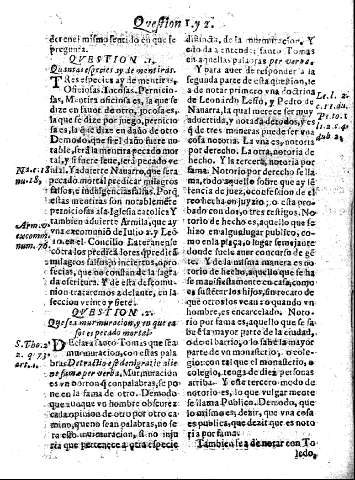 Question 1. y 2.
deren el mismo sentido en que se
pregunta.
QVESTION .1.
Quantas especies ay de mentiras.
TRes especies ay de mentiras.
Oficiosas. Iocosas. Pernicio-
sas, Mentira oficiosa es, la que se
dize en fauor de otro, jocosa es,
la que se dize por juego, pernicio
sa es, la que dize en daño de otro
Demodo, que si el daño fuere no-
table, será la mentira pecado mor
tal, y si fuere leue, será pecado ve
nial. Y aduierte Nauarro, que será
pecado mortal predicar milagros
falsos, e indulgencias falsas. Porq̃
estas mentiras son notablemẽte
perniciosas a la Iglesia catolica Y
tambien aduierte Armila, que ay
vna excomunió de Iulio 2. y Leó-
io. en el Concilio Lateranense
cótra los predicadores q̃ predicã
milagros falsos o inciertos, o pro-
fecias, que no constande la sagra
da escritura. Y de esta descomu-
nion trataremos adelante, en la
seccion veinte y siete.
Na. c. 18
nu. 18,
Arm. v.
excomm.
num. 76.
QVESTION .2.
Que sea murmuracion, y en que ca
sos es pecado mortal.
DEclara santo Tomas que sea
murmuracion, con estas palabras
Detractio est denigratio alie
næ famæ per verba, Murmuracion
es vn borron q̃ con palabras, se po
ne en la fama de otro. Demodo
que aunque vn hombre obscurez
ca la opinion de otro por otro ca
mino, que no sean palabras, no se
ra esso murmuracion, si no inju
ria que pertenece a otra especie
S. Tho. 2.
2. q. 73.
art. 1.
distincta, de la murmuracion. Y
esto da a entender santo Tomas
en aquellas palabras per verba.
Y para auer de responder a la
segunda parte de esta question, es
de notar primero vna doctrina
de Leonardo Lesio, y Pedro de
Nauarra, la qual merece ser muy
aduertida, y notada de todos, y es
q̃ de tres maneras puede ser vna
cosa notoria. La vna es, notoria
por derecho. La otra, notoria de
hecho. Y la tercera, notoria por
fama. Notorio por derecho se lla
ma, todo aquello sobre que ay sẽ
tencia de juez, o confession de el
reo hecha en juyzio; o esta pro-
bado con dos, o tres testigos. No-
torio de hecho es, aquello que se
hizo en algun lugar publico, co-
mo en la plaça, o lugar semejante
donde suele auer concurso de gen
te. Y de la misma manera es no-
torio de hecho, aquello que se ha
se manifiestamente en casa; como
es sustentar los hijos, de vno caso de
que otros los vean azo quando vn
hombre, es encarcelado. Notorio
por fama es, aquello que se sa-
be la mayor parte de la ciudad,
o de el barrio, o lo sabe la mayor
parte de vn monasterio, o cole-
gio, con tal que el monasterio, o
colegio, tenga de diez personas
arriba. Y este tercero modo de
notorio es, lo que vulgarmente
se llama Publico. Demodo, que
lo mismo es, dezir, que vna cosa es
publica, que dezir que es noto
ria por fama.
Tambien se a de notar con To
ledo,